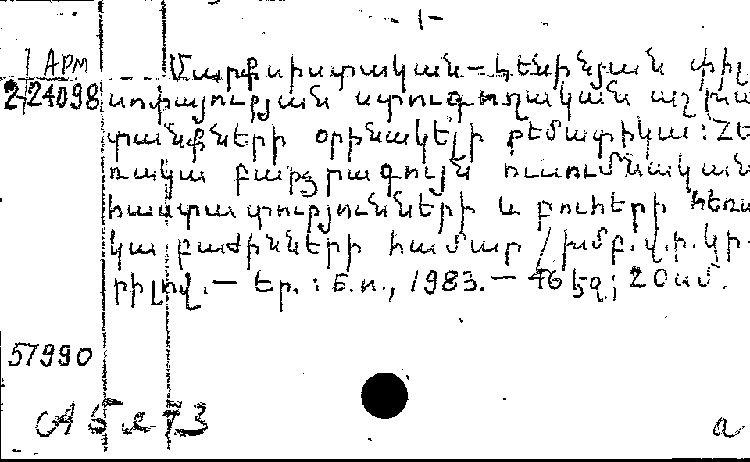 -1-
АРМ Մարքսիստական-լենինյան փիլ
2-24098 սոփայության ստուգողական աշխա
տանքների օրինակելի թեմատիկա: Հե
ռակա բարձրագույն ուսումնական
հաստատությունների և բուհերի հեռա
կա բաժինների համար / խմբ. վ. ի. կի-
րիլով. - Եր. : Ե. հ., 1983. - 46 էջ; 20սմ.
57990
a